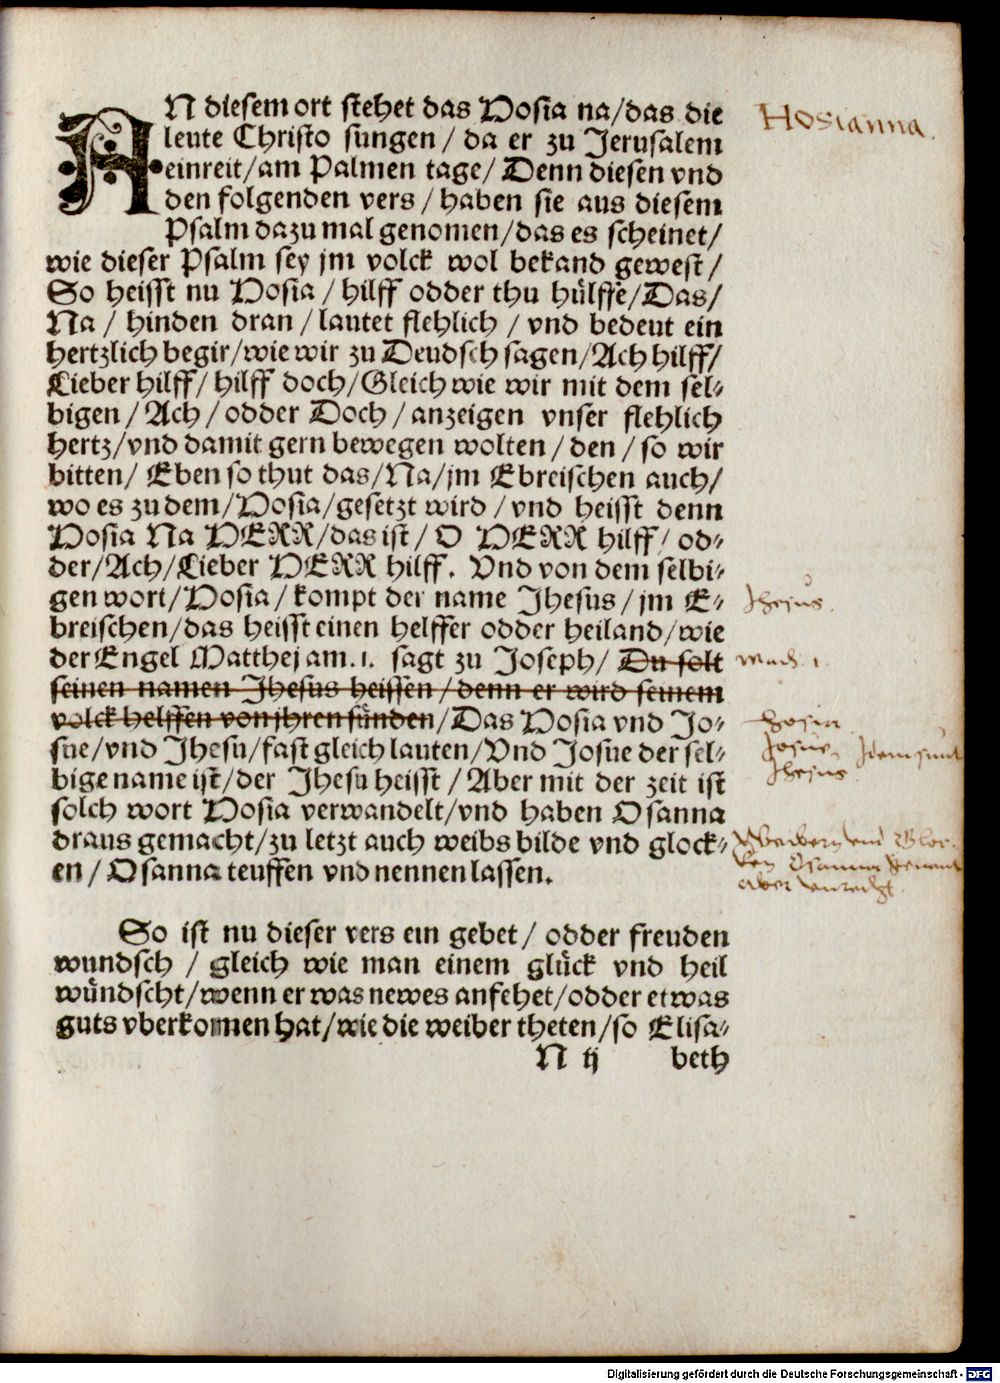 AN diesem ort stehet das Hosia na/das die
leute Christo sungen/ da er zu Jerusalem
einreit/am Palmen tage/ Denn diesen vnd
den folgenden vers/ haben sie aus diesem
Psalm dazu mal genomen/das es scheinet/
wie dieser Psalm sey jm volck wol bekand gewest/
So heisst nu Hosia/ hilff odder thu hülffe/Das/
Na/ hinden dran/lautet flehlich/ vnd bedeut ein
hertzlich begir/wie wir zu Deudsch sagen/Ach hilff/
Lieber hilff/ hilff doch/Gleich wie wir mit dem sel-
bigen/Ach/odder Doch/anzeigen vnser flehlich
hertz/vnd damit gern bewegen wolten/ den/ so wir
bitten/ Eben so thut das/Na/jm Ebreischen auch/
wo es zu dem/Hosia/gesetzt wird/ vnd heisst denn
Hosia Na HERR/das ist/ O HERR hilff/ od-
der/Ach/Lieber HERR hilff. Vnd von dem selbi-
gen wort/Hosia/ kompt der name Jhesus/ jm E-
breischen/das heisst einen helffer odder heiland/wie
der Engel Matthej am.1. sagt zu Joseph/ Du solt
seinen namen Jhesus heissen/denn er wird seinem
volck helffen von jhren sünden/Das Hosia vnd Jo-
sue/vnd Jhesu/fast gleich lauten/Vnd Josue der sel-
bige name ist/der Jhesu heisst/ Aber mit der zeit ist
solch wort Hosia verwandelt/vnd haben Osanna
draus gemacht/zu letzt auch weibs bilde vnd glock-
en/Osanna teuffen vnd nennen lassen.
So ist nu dieser vers ein gebet/ odder freuden
wundsch/ gleich wie man einem glück vnd heil
wündscht/wenn er was newes anfehet/odder etwas
guts vberkomen hat/wie die weiber theten/so Elisa-
N ij beth
Hosianna.
Jhesus.
Math. 1
Hosia
Josue
Jhesus Idem sunt
Osanna genant
Digitalisierung gefördert durch die Deutsche Forschungsgemeinschaft - DFG